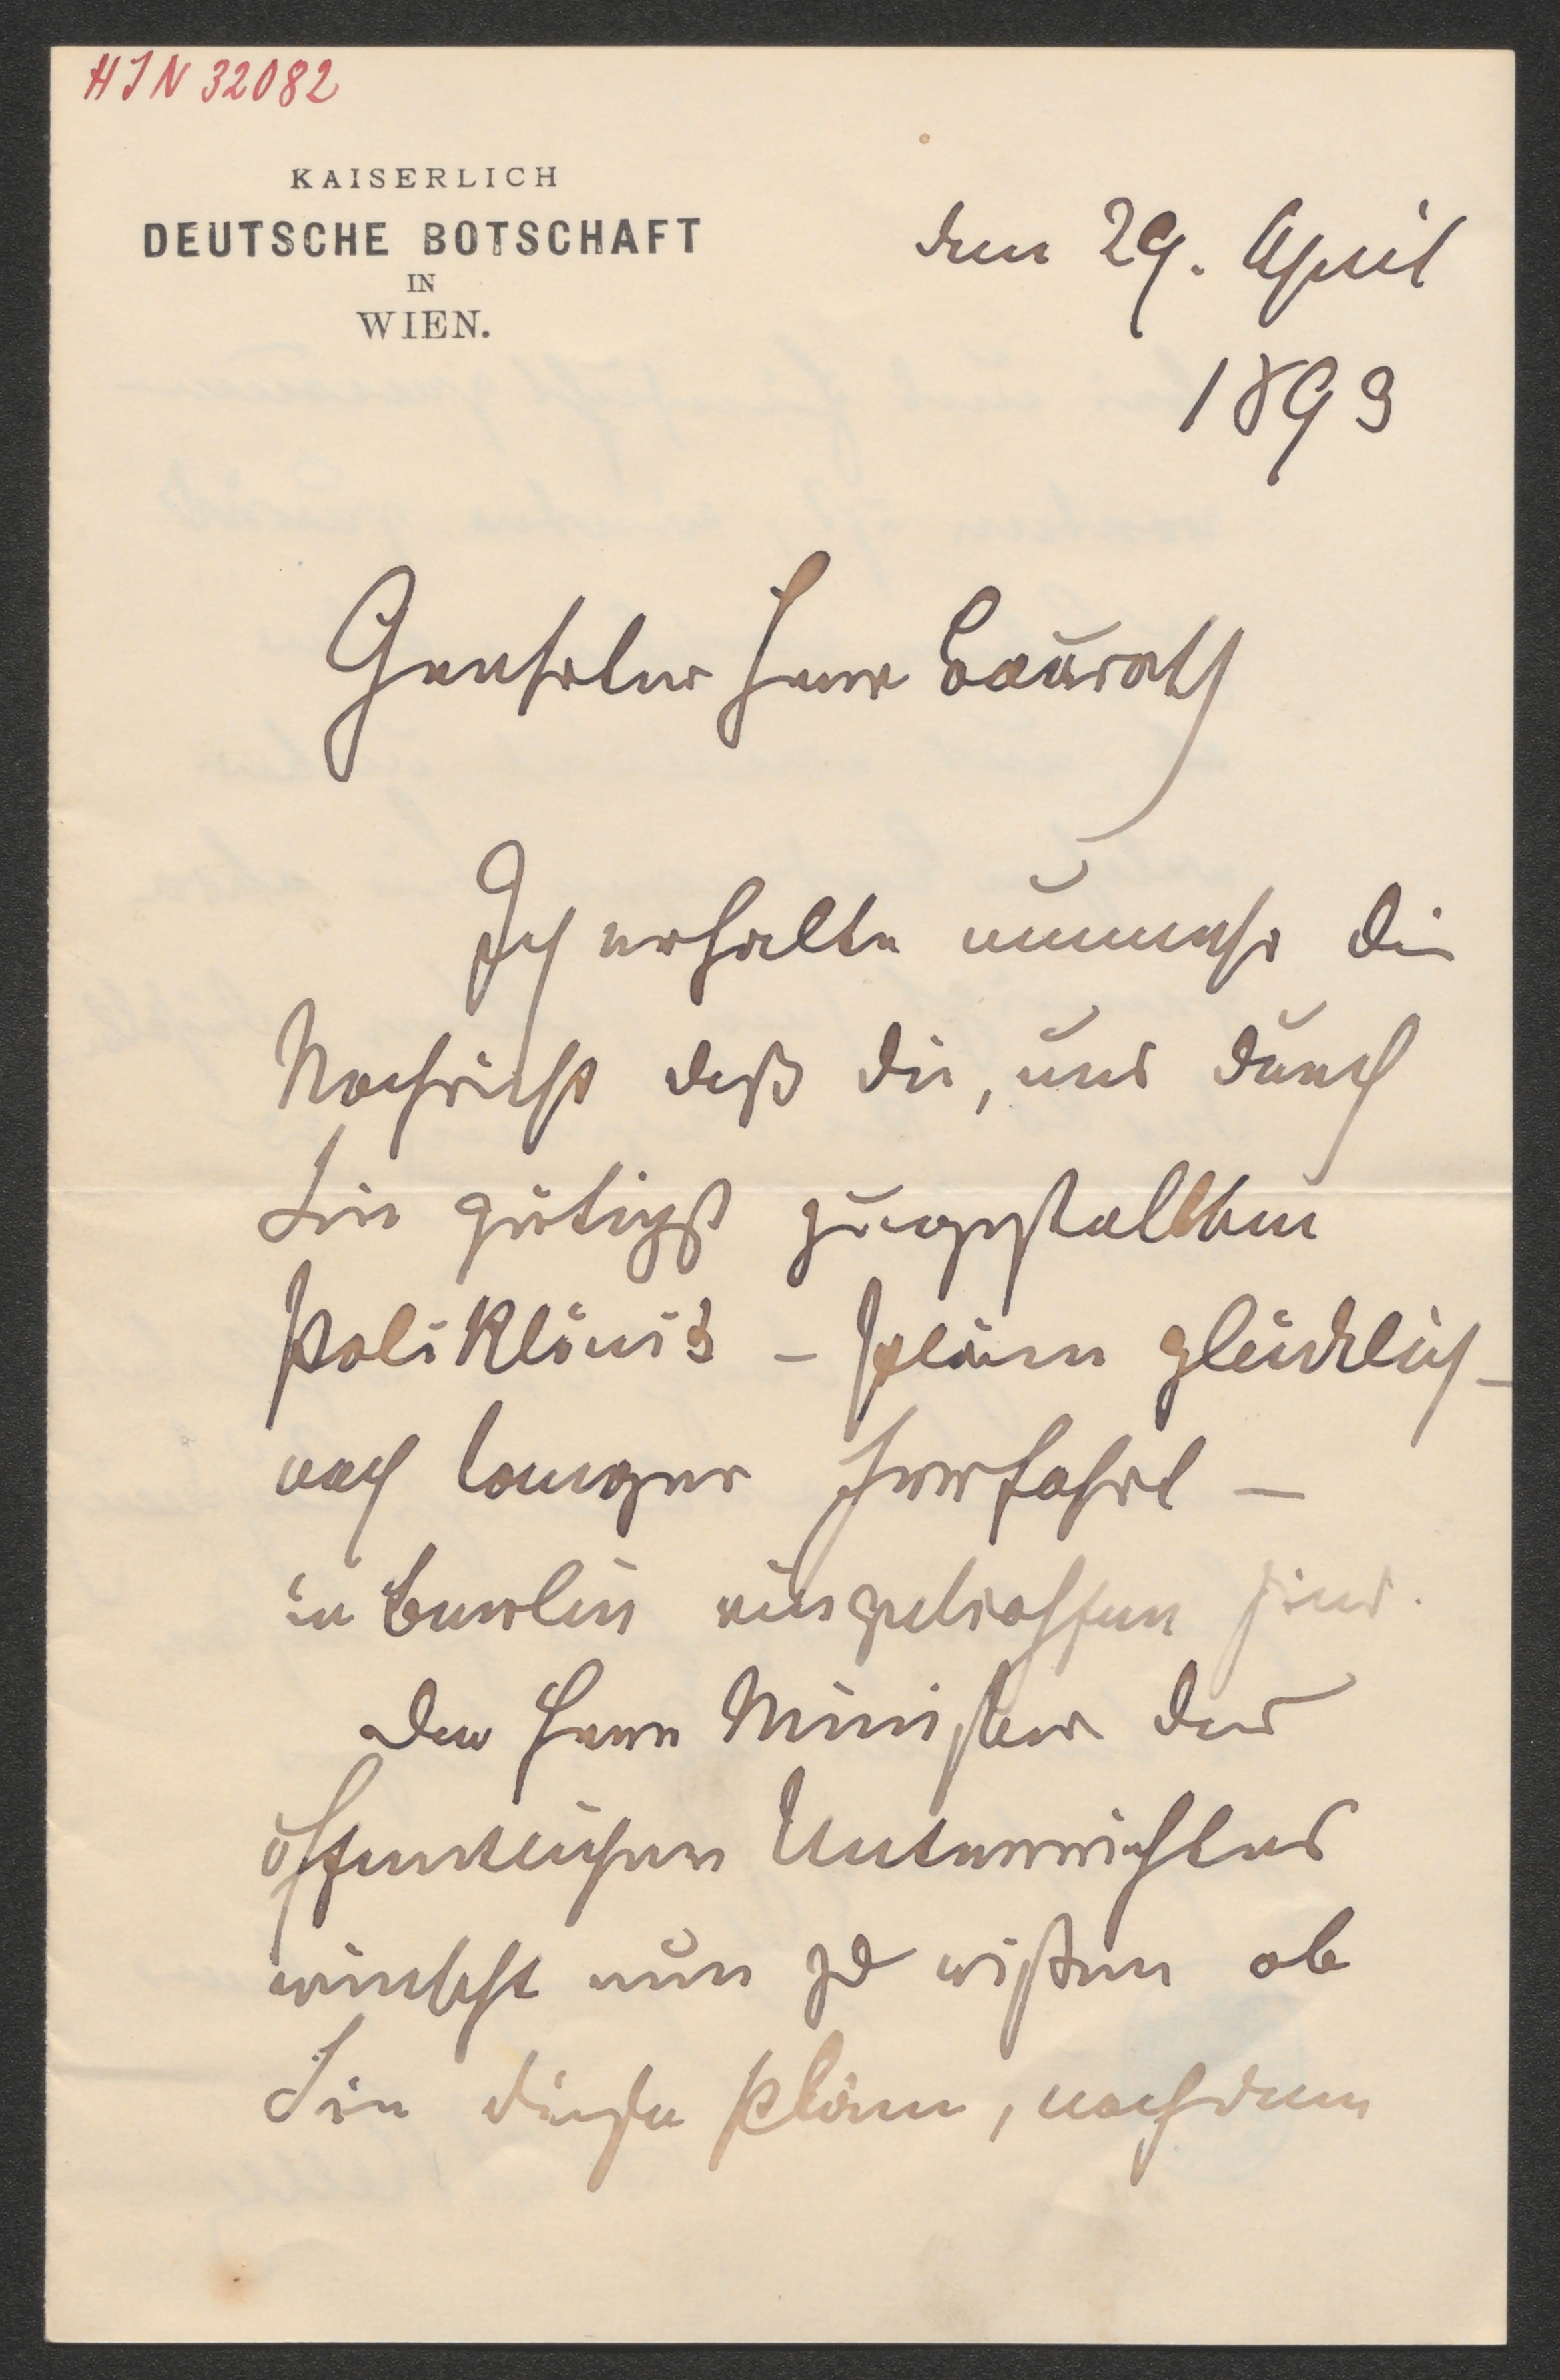 HIN 32082
KAISERLICH
DEUTSCHE BOTSCHAFT
IN
WIEN.
den 29. April
1893
Geehrter Herr Baurath
Ich erhalte nunmehr die
Nachricht daß die, uns durch
Sie gütigst zugestellten
Poliklinik - Pläne glücklich -
nach langer Irrfahrt -
in Berlin eingetroffen sind.
Der Herr Minister des
öffentlichen Unterrichtes
wünscht nun zu wißen ob
Sie diese Pläne, nachdem